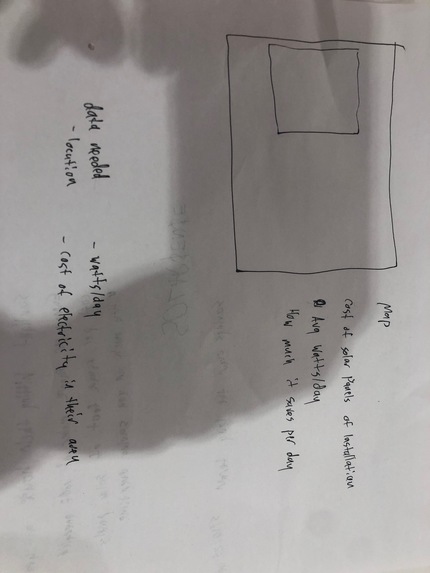 Map
Cost of solar Panels of Installation
Avg Watts/day
How much it saves per day
data needed
- location
- watts/day
- cost of electricity in their area